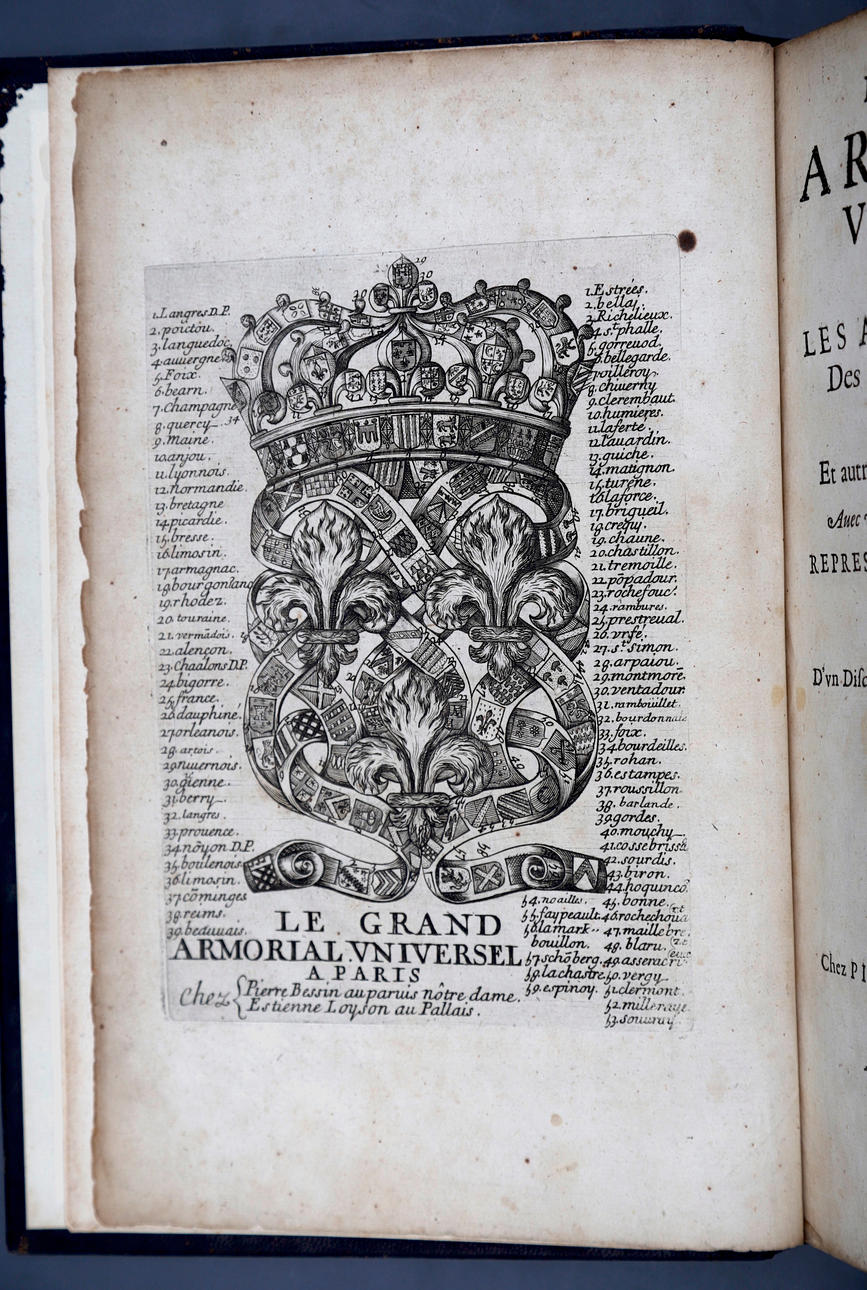 1.Langres D.P.
2.poictou.
3.languedoc.
4.auuergne
5.Foix.
6.bearn.
7.Champagne
8.quercy.
9.Maine.
10.anjou.
11.lyonnois.
12.normandie.
13.bretagne
14.picardie.
15.bresse.
16.limosin.
17.armagnac.
18.bourgongne
19.rhodez.
20.touraine.
21.vermādois.
22.alençon.
23.Chaalons D.P.
24.bigorre.
25.france.
26.dauphiné.
27.orleanois.
28.artois.
29.niuernois.
30.gienne.
31.berry.
32.langres.
33.prouence.
34.nōyon D.P.
35.boulenois
36.limosin.
37.cōminges
38.reims.
39.beauuais.
1.Estrées.
2.bellay.
3.Richelieux.
4.st.phalle.
5.gorreuod.
6.bellegarde.
7.villeroy.
8.chiuerny
9.clerembaut.
10.humieres.
11.laferté.
12.lauardin.
13.guiche.
14.matignon.
15.turene.
16.laforce.
17.brigueil.
18.crequy.
19.chaune.
20.chastillon.
21.tremoille.
22.pōpadour.
23.rochefouc.
24.rambures.
25.prestreual.
26.vrfe.
27.st.simon.
28.arpaiou.
29.montmore.
30.ventadour.
31.rambouillet.
32.bourdonnaie
33.foix.
34.bourdeilles.
35.rohan.
36.estampes.
37.roussillon
38.barlande.
39.gordes.
40.mouchy.
41.cossebrissa
42.sourdis.
43.biron.
44.hoquinco.
45.bonne.
46.rochechoua
47.maillebre.
48.blaru.
49.asserac
50.vergy.
51.clermont.
52.milleraye.
53.souuray.
54.noailles.
55.faypeault.
56.lamark
bouillon.
57.schōberg.
58.lachastre.
59.espinoy.
LE GRAND
ARMORIAL VNIVERSEL
A PARIS
Chez { Pierre Bessin au paruis nôtre dame.
Estienne Loyson au Pallais.
AR
V
LES A
Des
Et autr
Auec
REPRES
D'vn Disc
Chez P